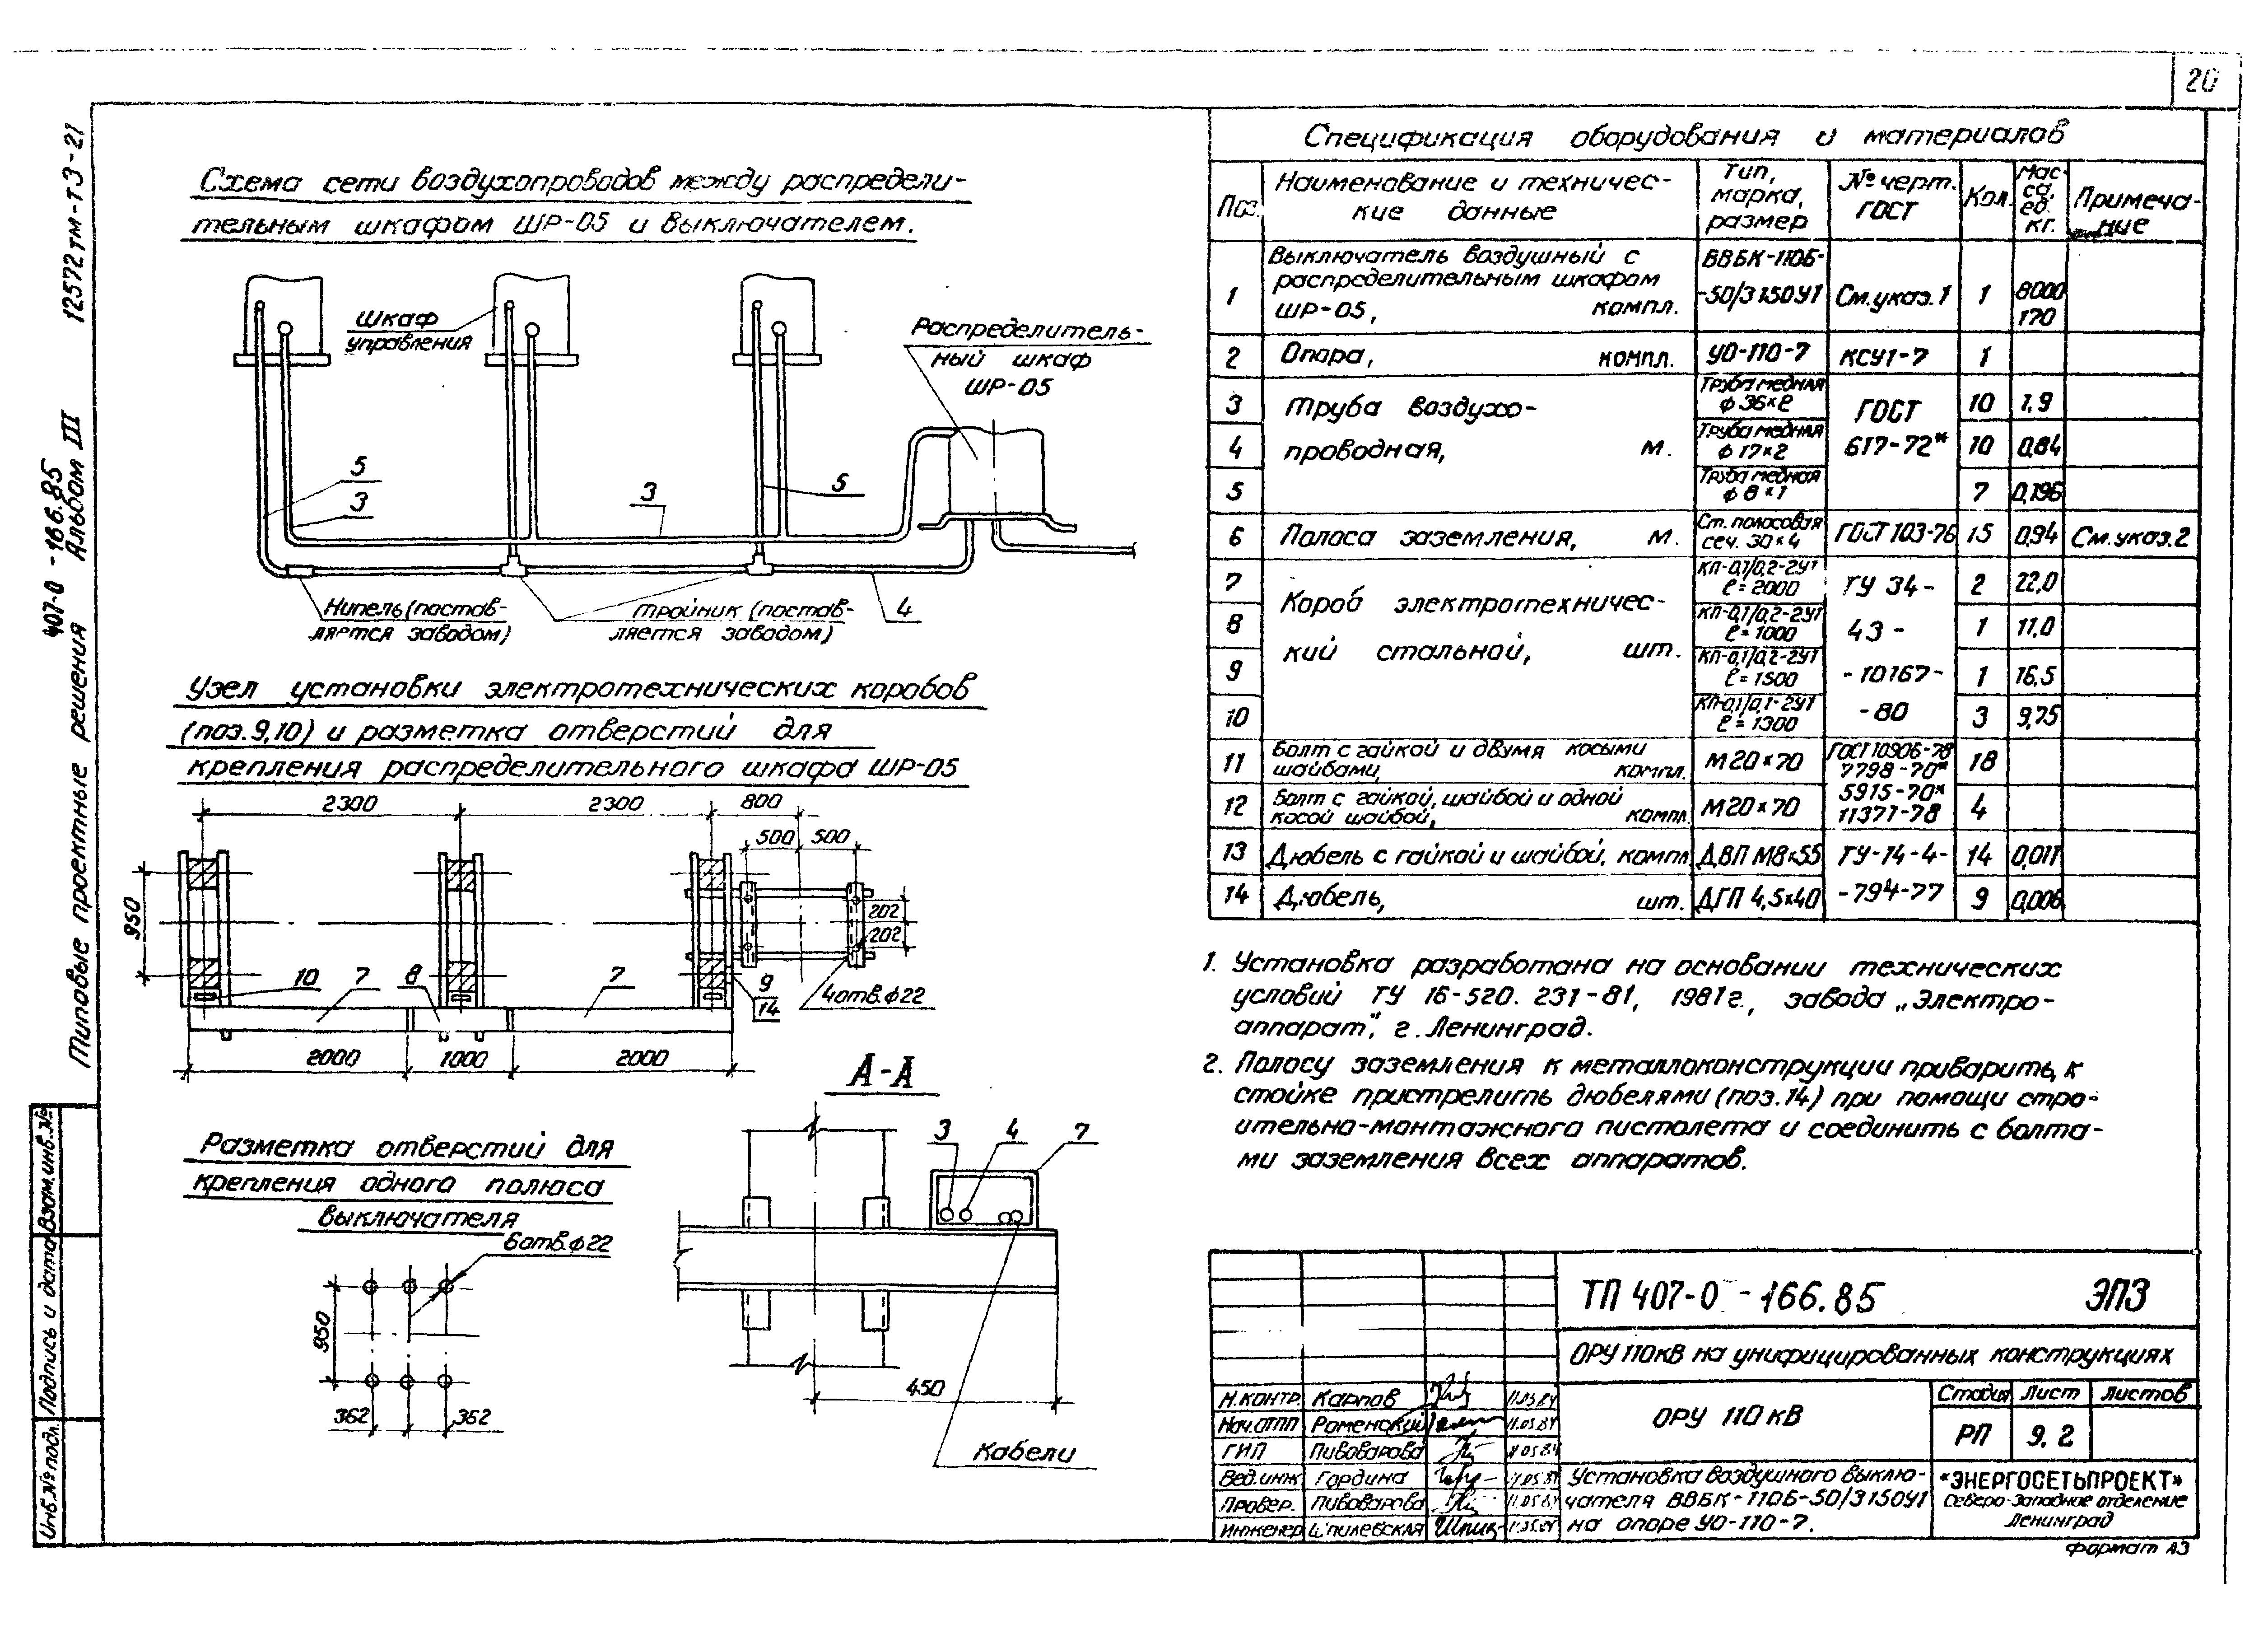 20
12572тм-т3-21
407-0-166.85
Типовые проектные решения Альбом III
Взам.инв.№
Подпись и дата
Инв.№ подл.
Схема сети воздухопроводов между распредели-
тельным шкафом ШР-05 и выключателем.
Шкаф
управления
Распределитель-
ный шкаф
ШР-05
5
3
3
5
4
Нипель (постав-
ляется заводом)
тройник (постав-
ляется заводом)
Узел установки электротехнических коробов
(поз.9,10) и разметка отверстий для
крепления распределительного шкафа ШР-05
2300
2300
800
500
500
950
202
202
10
7
8
7
9
14
4отв.ф22
2000
1000
2000
А-А
3
4
7
450
Кабели
Разметка отверстий для
крепления одного полюса
выключателя
6отв.ф22
950
362
362
Спецификация оборудования и материалов
Поз. Наименование и техничес-кие данные Тип, марка, размер № черт. ГОСТ Кол. Мас-са, ед. кг. Примеча-ние
1 Выключатель воздушный с распределительным шкафом ШР-05, компл. ВВБК-110Б-50/3150У1 См.указ.1 1 8000 170
2 Опора, компл. УО-110-7 КСУ1-7 1
3 Труба воздухо- Труба медная ф 36×2 ГОСТ 10 1,9
4 проводная, м. Труба медная ф 17×2 617-72* 10 0,84
5 Труба медная ф 8×1 7 0,196
6 Полоса заземления, м. Ст. полосовая сеч. 30×4 ГОСТ 103-76 15 0,94 См.указ.2
7 Короб электротехничес- КП-0,1/0,2-2У1 ℓ=2000 ТУ 34- 2 22,0
8 КП-0,1/0,2-2У1 ℓ=1000 43- 1 11,0
9 кий стальной, шт. КП-0,1/0,2-2У1 ℓ=1500 -10167- 1 16,5
10 КП-0,1/0,1-2У1 ℓ=1300 -80 3 9,75
11 Болт с гайкой и двумя косыми шайбами, компл. М20×70 ГОСТ 10906-78 7798-70* 18
12 Болт с гайкой, шайбой и одной косой шайбой, компл. М20×70 5915-70* 11371-78 4
13 Дюбель с гайкой и шайбой, компл ДВП М8×55 ТУ-14-4- 14 0,011
14 Дюбель, шт. ДГП 4,5×40 -794-77 9 0,006
1. Установка разработана на основании технических
условий ТУ 16-520.231-81, 1981г., завода „Электро-
аппарат", г. Ленинград.
2. Полосу заземления к металлоконструкции приварить, к
стойке пристрелить дюбелями (поз.14) при помощи стро-
ительно-монтажного пистолета и соединить с болта-
ми заземления всех аппаратов.
ТП 407-0-166.85 ЭП3
ОРУ 110кВ на унифицированных конструкциях
Н.контр. Карпов 11.05.84
Нач.ОТПП Роменский 11.05.84
ГИП Пивоварова 11.05.84
Вед.инж Гордина 11.05.84
Провер. Пивоварова 11.05.84
Инженер Шпилевская 11.05.84
ОРУ 110 кВ
Стадия Лист Листов
РП 9.2
Установка воздушного выклю-
чателя ВВБК-110Б-50/3150У1
на опоре УО-110-7.
«ЭНЕРГОСЕТЬПРОЕКТ»
Северо-Западное отделение
Ленинград
Формат А3